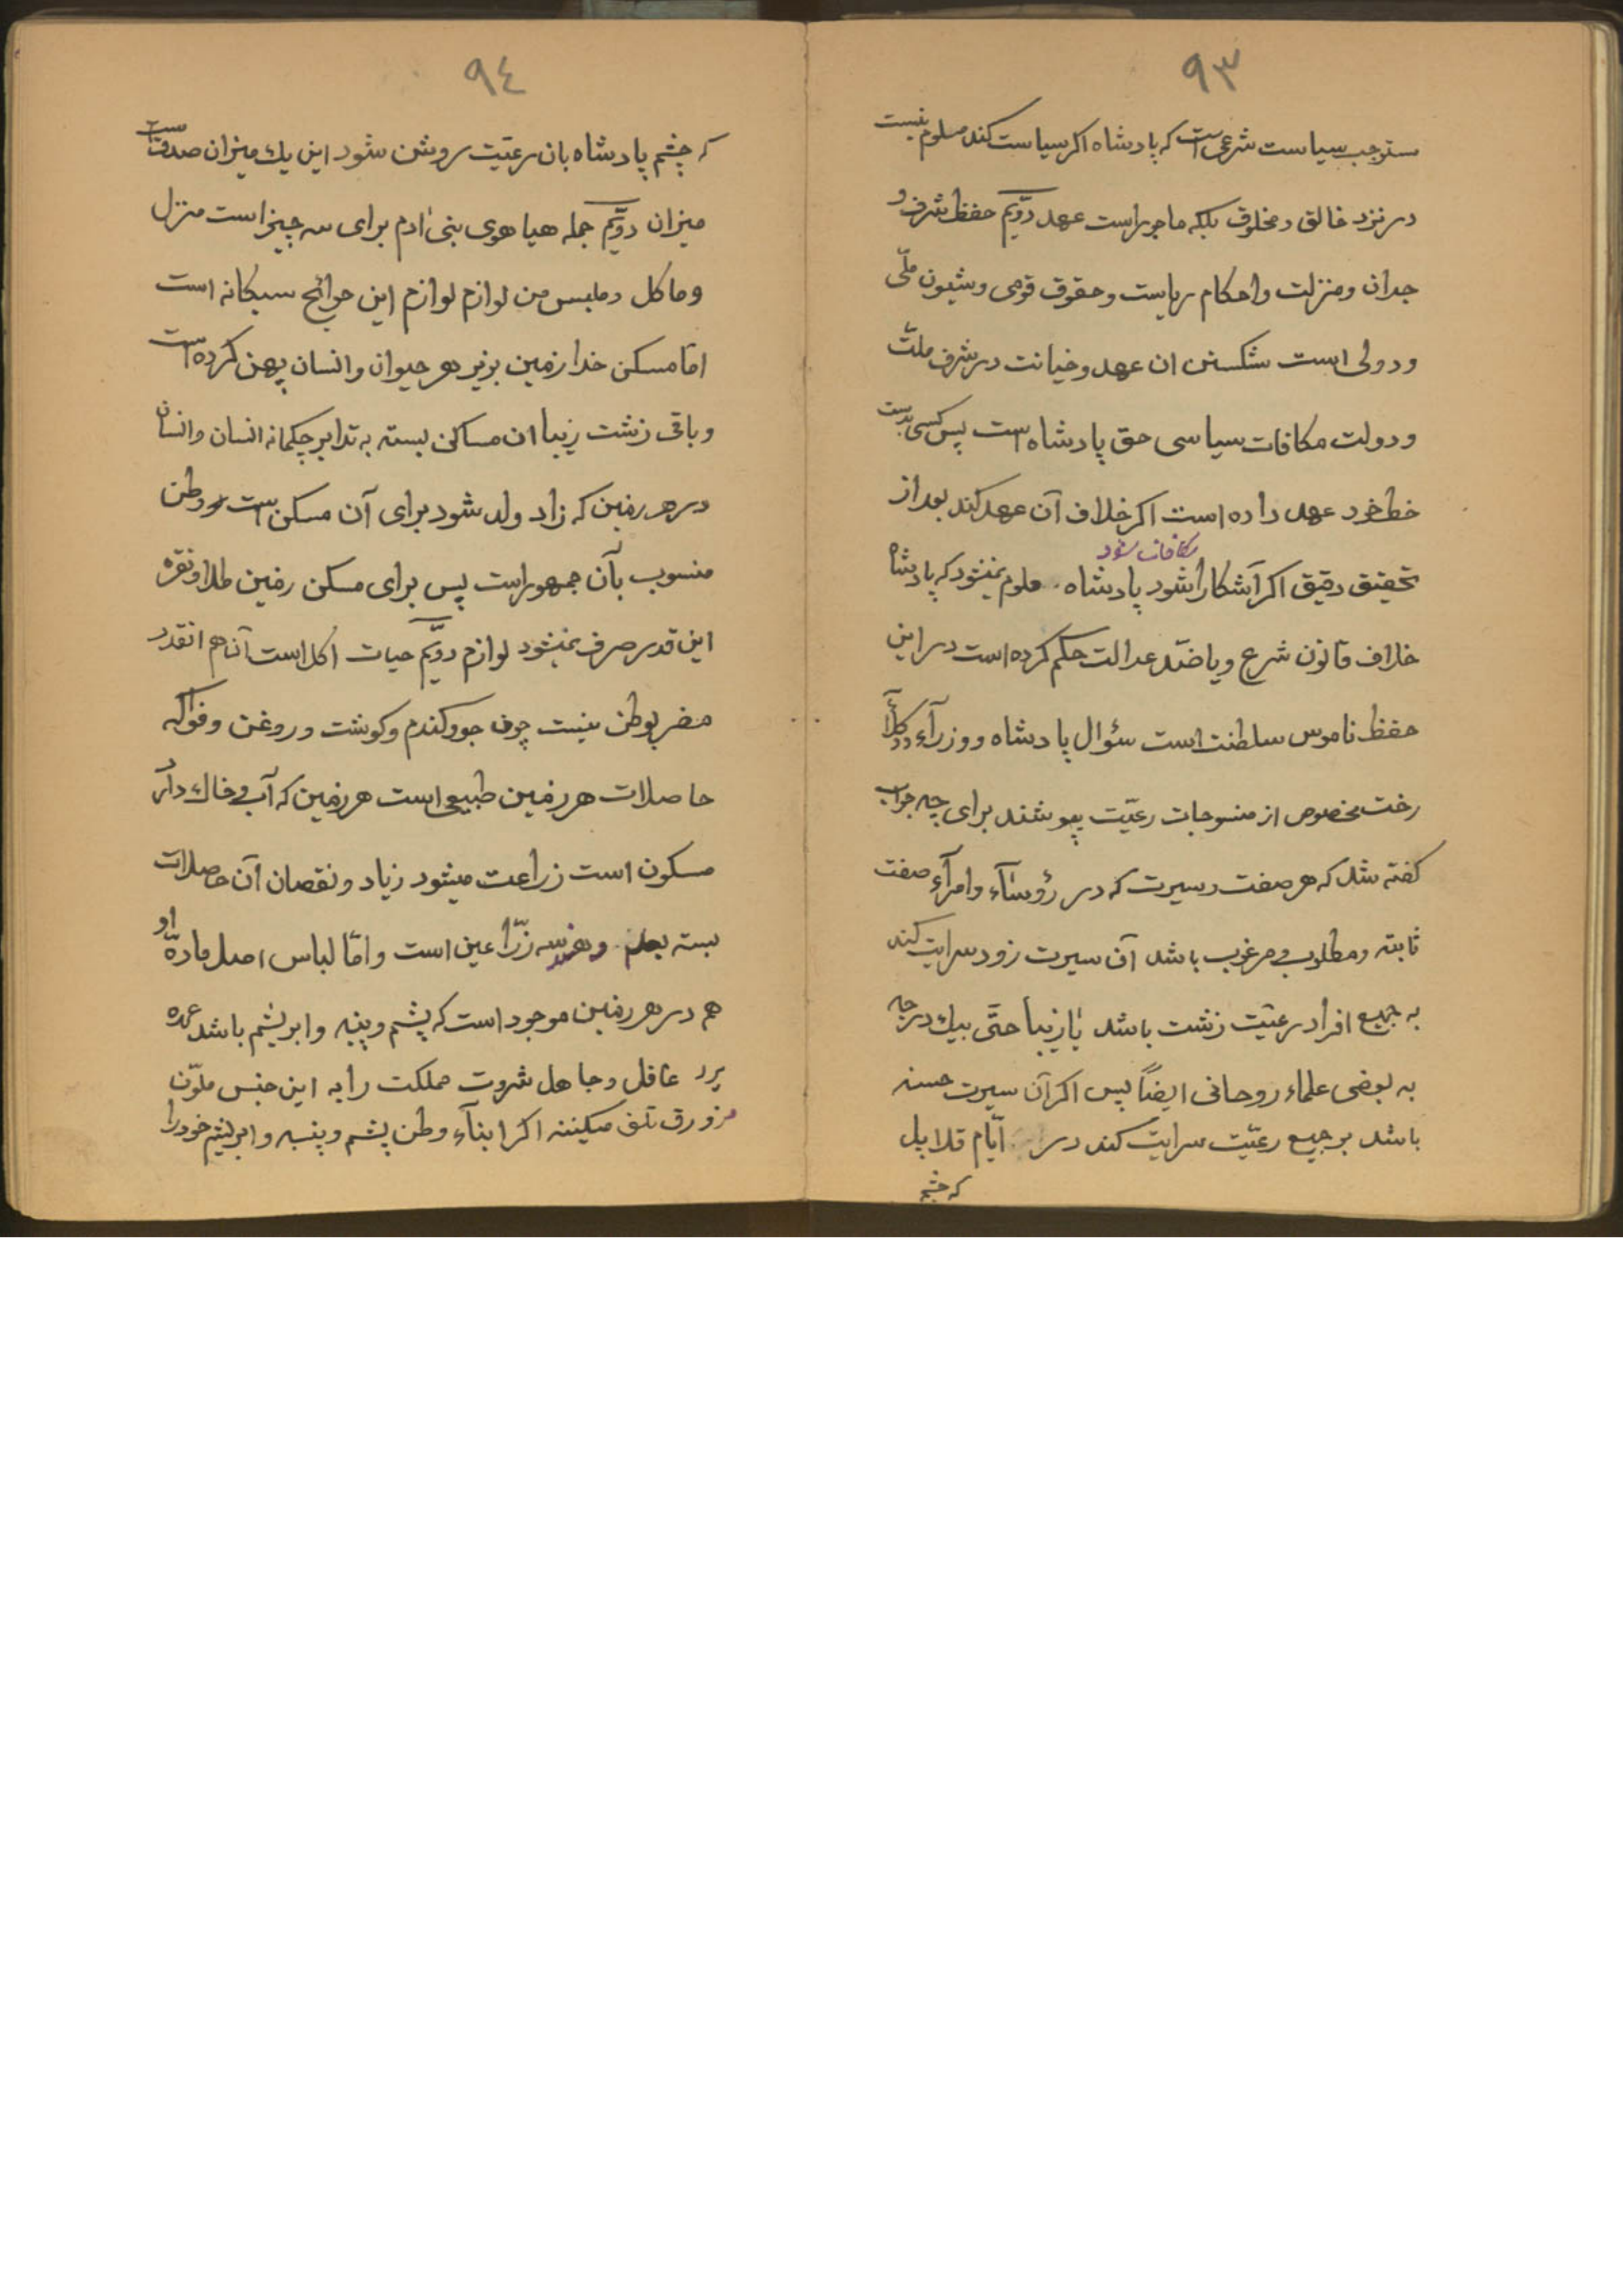 ٩٣
ستوجب سیاست شرعی است که پادشاه اکر سیاست کند مسلوم نیست
در نزد خالق و مخلوق بلکه ماجور است عهد دوّیم حفظ شرف و
جدان و منزلت و احکام ریاست و حقوق قومی و شیون ملّی
و دولی است شکستن ان عهد و خیانت در شرف ملت
و دولت مکافات سیاسی حق پادشاه است پس کسی بدست
خط خود عهد داده است اکر خلاف آن عهد کند بعد از
مکافات شود
تحقیق دقیق اکر آشکارا شود پادشاه ملوم نمیشود که پادشاه
خلاف قانون شرع و یا ضدّ عدالت حکم کرده است در این
حفظ ناموس سلطنت است سؤال پادشاه و وزرآء و وکلآء
رخت مخصوص از منسوجات رعیّت پپوشند برای چه جواب
کفته شد که هر صفت و سیرت که در رؤسآء و امرآء صفت
ثابته و مطلوب و مرغوب باشد آن سیرت زود سرایت کند
به جمیع افراد رعیّت زشت باشد یا زیبا حتّی بیك درجه
به بعضی علماء روحانی ایضاً پس اکر آن سیرت حسنه
باشد بر جمیع رعیّت سرایت کند در ایّام قلایل
که چشم
٩٤
که چشم پادشاه بان رعیّت روشن شود این یك میزان صدق است
میزان دوّیم جمله هیاهوی بنی ادم برای سه چیز است منزل
و ماکل و ملبس من لوازم لوازم این حوائج سیکانه است
امّا مسکن خدا زمین بزیر هر حیوان و انسان پهن کرده است
و باقی زشت زیبا ان مساکن بسته به تدابیر حکمانه انسان و انسان
در هر زمین که زاد ولد شود برای آن مسکن است و وطن
منسوب بآن جمهور است پس برای مسکن زمین طلا و نقره
این قدر صرف نمیشود لوازم دوّیم حیات اکل است آنهم انقدر
مضر بوطن نیست چون جو و کندم و کوشت و روغن و فواکه
حاصلات هر زمین طبیعی است هر زمین که آب و خاك دارد
مسکون است زراعت میشود زیاد و نقصان آن حاصلات
بسته بعلم و هندسه زرّاعین است و امّا لباس اصل مادهّ او
هم در هر زمین موجود است که پشم و پنبه و ابریشم باشد عمده
عاقل و جاهل ثروت مملکت را به این جنس ملوّن
مزورق تلف میکیننه اکر ابنآء وطن پشم و پنبه و ابریشم خود را